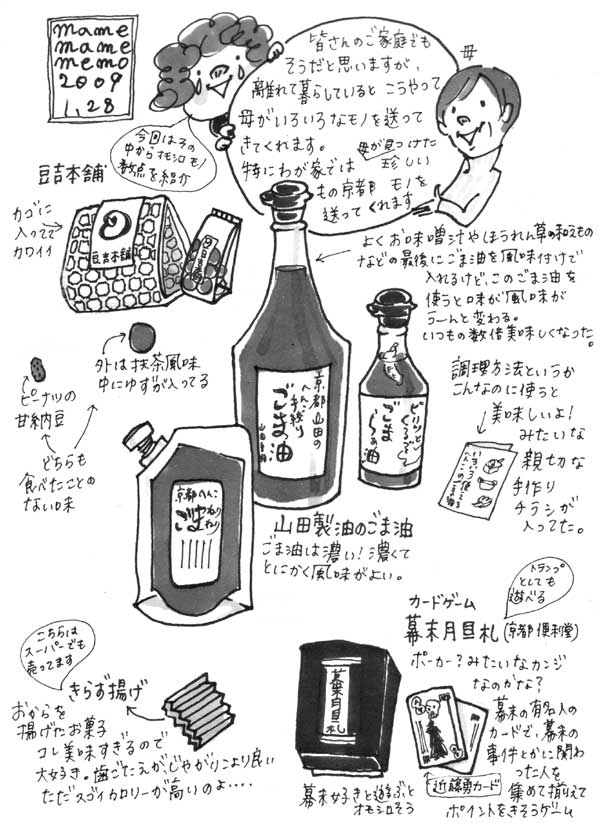 mame
mame
memo
2009
1.28
皆さんのご家庭でも
そうだと思いますが、
離れて暮らしていると こうやって
母がいろいろなモノを送って
きてくれます。
特にわが家では
母が見つけた
珍しい
もの京都 モノを
送ってくれます
母
今回はその
中からオモシロモノ
数点を紹介
豆吉本舗
カゴに
入ってて
カワイイ
豆吉本舗
よくお味噌汁やほうれん草の和えもの
などの最後にごま油を風味付けで
入れるけど、このごま油を
使うと味が風味が
うーんと変わる。
いつもの数倍美味しくなった。
外は抹茶風味
中にゆずが入ってる
ピーナツの
甘納豆
どちらも
食べたことの
ない味
京都山田の
へんこ手絞り
ごま油
山田製油
ピリッと
ごま
らぁ油
調理方法というか
こんなのに使うと
美味しいよ!
みたいな
親切な
手作り
チラシが
入ってた。
京都へんこ
山田製油のごま油
ごま油は濃い!濃くて
とにかく風味がよい。
トランプ
としても
遊べる
カードゲーム
幕末月旦札(京都便利堂)
ポーカー?みたいなカンジ
なのかな?
幕末の有名人の
カードで、幕末の
事件とかに関わ
った人を
集めて揃えて
ポイントをきそうゲーム
近藤勇カード
幕末月旦札
幕末好きと遊ぶと
オモシロそう
こちらは
スーパーでも
売ってます
きらず揚げ
おからを
揚げたお菓子
コレ美味すぎるので
大好き。歯ごたえが、じゃがりこより良い
ただスゴイカロリーが高いのよ....